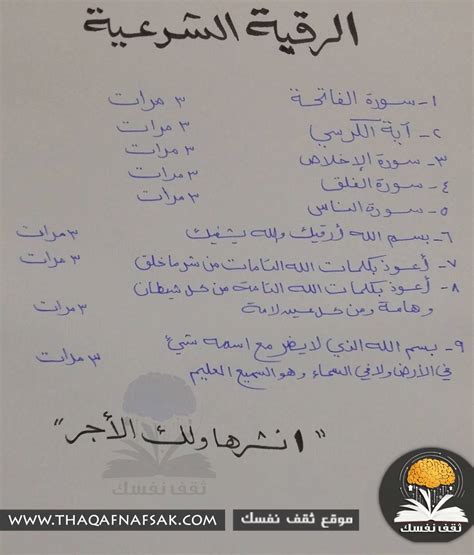 الرقية الشرعية
١- سورة الفاتحة ٣ مرات
٢- آية الكرسي ٣ مرات
٣- سورة الإخلاص ٣ مرات
٤- سورة الفلق ٣ مرات
٥- سورة الناس ٣ مرات
٦- بسم الله أرقيك والله يشفيك ٣ مرات
٧- أعوذ بكلمات الله التامات من شر ما خلق ٣ مرات
٨- أعوذ بكلمات الله التامة من كل شيطان
وهامة ومن كل عين لامة ٣ مرات
٩- بسم الله الذي لا يضر مع اسمه شيئ
في الأرض ولا في السماء وهو السميع العليم ٣ مرات
"انشرها ولك الأجر"
ثقف نفسك
WWW.THAQAFNAFSAK.COM موقع ثقف نفسك
ثقف نفسك